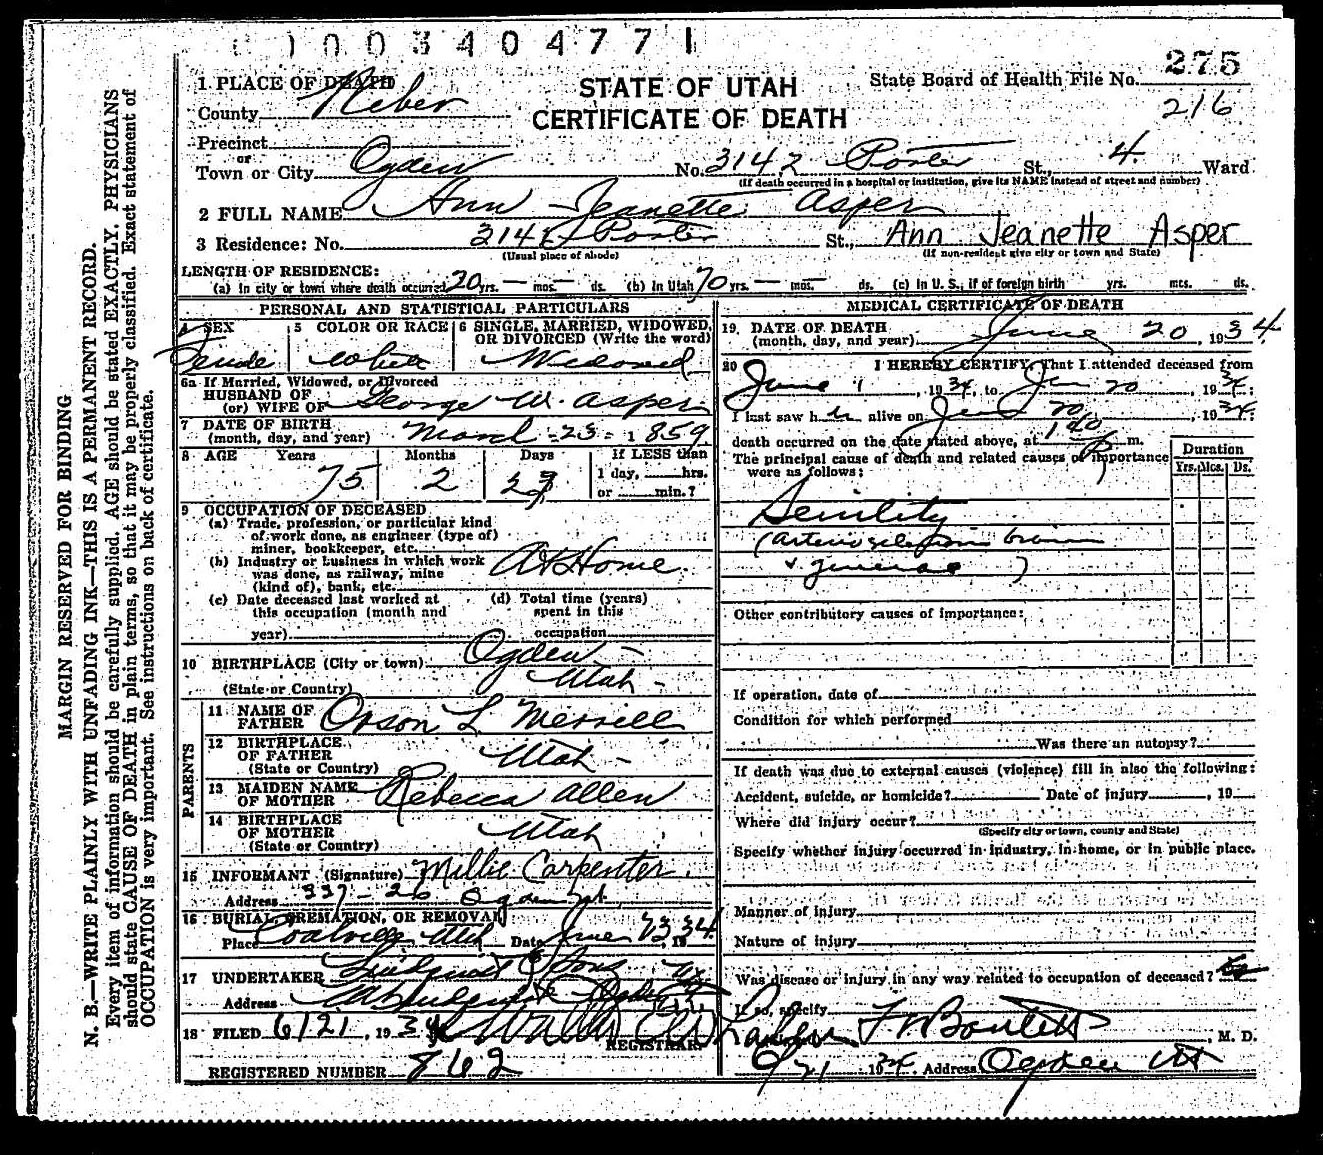 00340477
275
1 PLACE OF DEATH
STATE OF UTAH
CERTIFICATE OF DEATH
State Board of Health File No.
216
County Weber
Precinct
or
Town or City Ogden No. 3142 Porter St., 4 Ward
(If death occurred in a hospital or institution, give its NAME instead of street and number)
2 FULL NAME Ann Jeanette Asper
3 Residence: No. 3142 Porter St., Ann Jeanette Asper
(Usual place of abode) (If non-resident give city or town and State)
LENGTH OF RESIDENCE:
(a) In city or town where death occurred 20 yrs. — mos. ds. (b) In Utah 70 yrs. — mos. ds. (c) In U. S., if of foreign birth yrs. mos. ds.
PERSONAL AND STATISTICAL PARTICULARS
4 SEX 5 COLOR OR RACE 6 SINGLE, MARRIED, WIDOWED, OR DIVORCED (Write the word)
Female White Widowed
6a If Married, Widowed, or Divorced
HUSBAND OF
(or) WIFE OF George W. Asper
7 DATE OF BIRTH
(month, day, and year) March 23 1859
8 AGE Years Months Days If LESS than
1 day, hrs.
or min.?
75 2
9 OCCUPATION OF DECEASED
(a) Trade, profession, or particular kind
of work done, as engineer (type of)
miner, bookkeeper, etc.
(b) Industry or business in which work
was done, as railway, mine
(kind of), bank, etc.
At Home
(c) Date deceased last worked at
this occupation (month and
year)
(d) Total time (years)
spent in this
occupation
10 BIRTHPLACE (City or town) Ogden
(State or Country) Utah
PARENTS
11 NAME OF
FATHER Orson L Merrill
12 BIRTHPLACE
OF FATHER Utah
(State or Country)
13 MAIDEN NAME
OF MOTHER Rebecca Allen
14 BIRTHPLACE
OF MOTHER Utah
(State or Country)
15 INFORMANT (Signature) Millie Carpenter
Address 337-26 Ogden Ut.
16 BURIAL, CREMATION, OR REMOVAL
Place Coalville Utah Date June 23 1934
17 UNDERTAKER Lindquist & Sons
Address Ogden
18 FILED 6/21, 1934
REGISTRAR
REGISTERED NUMBER 862
MEDICAL CERTIFICATE OF DEATH
19 DATE OF DEATH
(month, day, and year) June 20, 1934
20 I HEREBY CERTIFY, That I attended deceased from
June 1, 1934, to Jun 20, 1934:
I last saw her alive on Jun 20, 1934:
death occurred on the date stated above, at P m.
The principal cause of death and related causes of importance
were as follows:
Duration
Yrs. Mos. Ds.
Senility
(arteriosclerosis brain
& general)
Other contributory causes of importance:
If operation, date of
Condition for which performed
Was there an autopsy?
If death was due to external causes (violence) fill in also the following:
Accident, suicide, or homicide? Date of injury, 19
Where did injury occur?
(Specify city or town, county and State)
Specify whether injury occurred in industry, in home, or in public place.
Manner of injury
Nature of injury
Was disease or injury in any way related to occupation of deceased? No
If so, specify
M. D.
6/21 1934. Address Ogden Ut
MARGIN RESERVED FOR BINDING
N. B.—WRITE PLAINLY WITH UNFADING INK—THIS IS A PERMANENT RECORD.
Every item of information should be carefully supplied. AGE should be stated EXACTLY. PHYSICIANS
should state CAUSE OF DEATH in plain terms, so that it may be properly classified. Exact statement of
OCCUPATION is very important. See instructions on back of certificate.